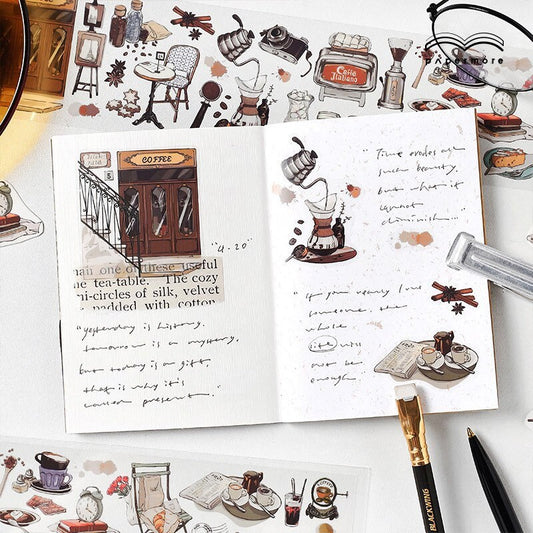 papermore
Caffe
Italiano
COFFEE
"4-20"
nail one of these useful
he tea-table. The cozy
ni-circles of silk, velvet
padded with cotton
"yesterday is history,
tomorrow is a mystery,
but today is a gift,
that is why it's
called present."
"Time erodes all
such beauty,
but what it
cannot
diminish..."
"If you really love
someone, the
whole
life will
not be
enough."
BLACKWING